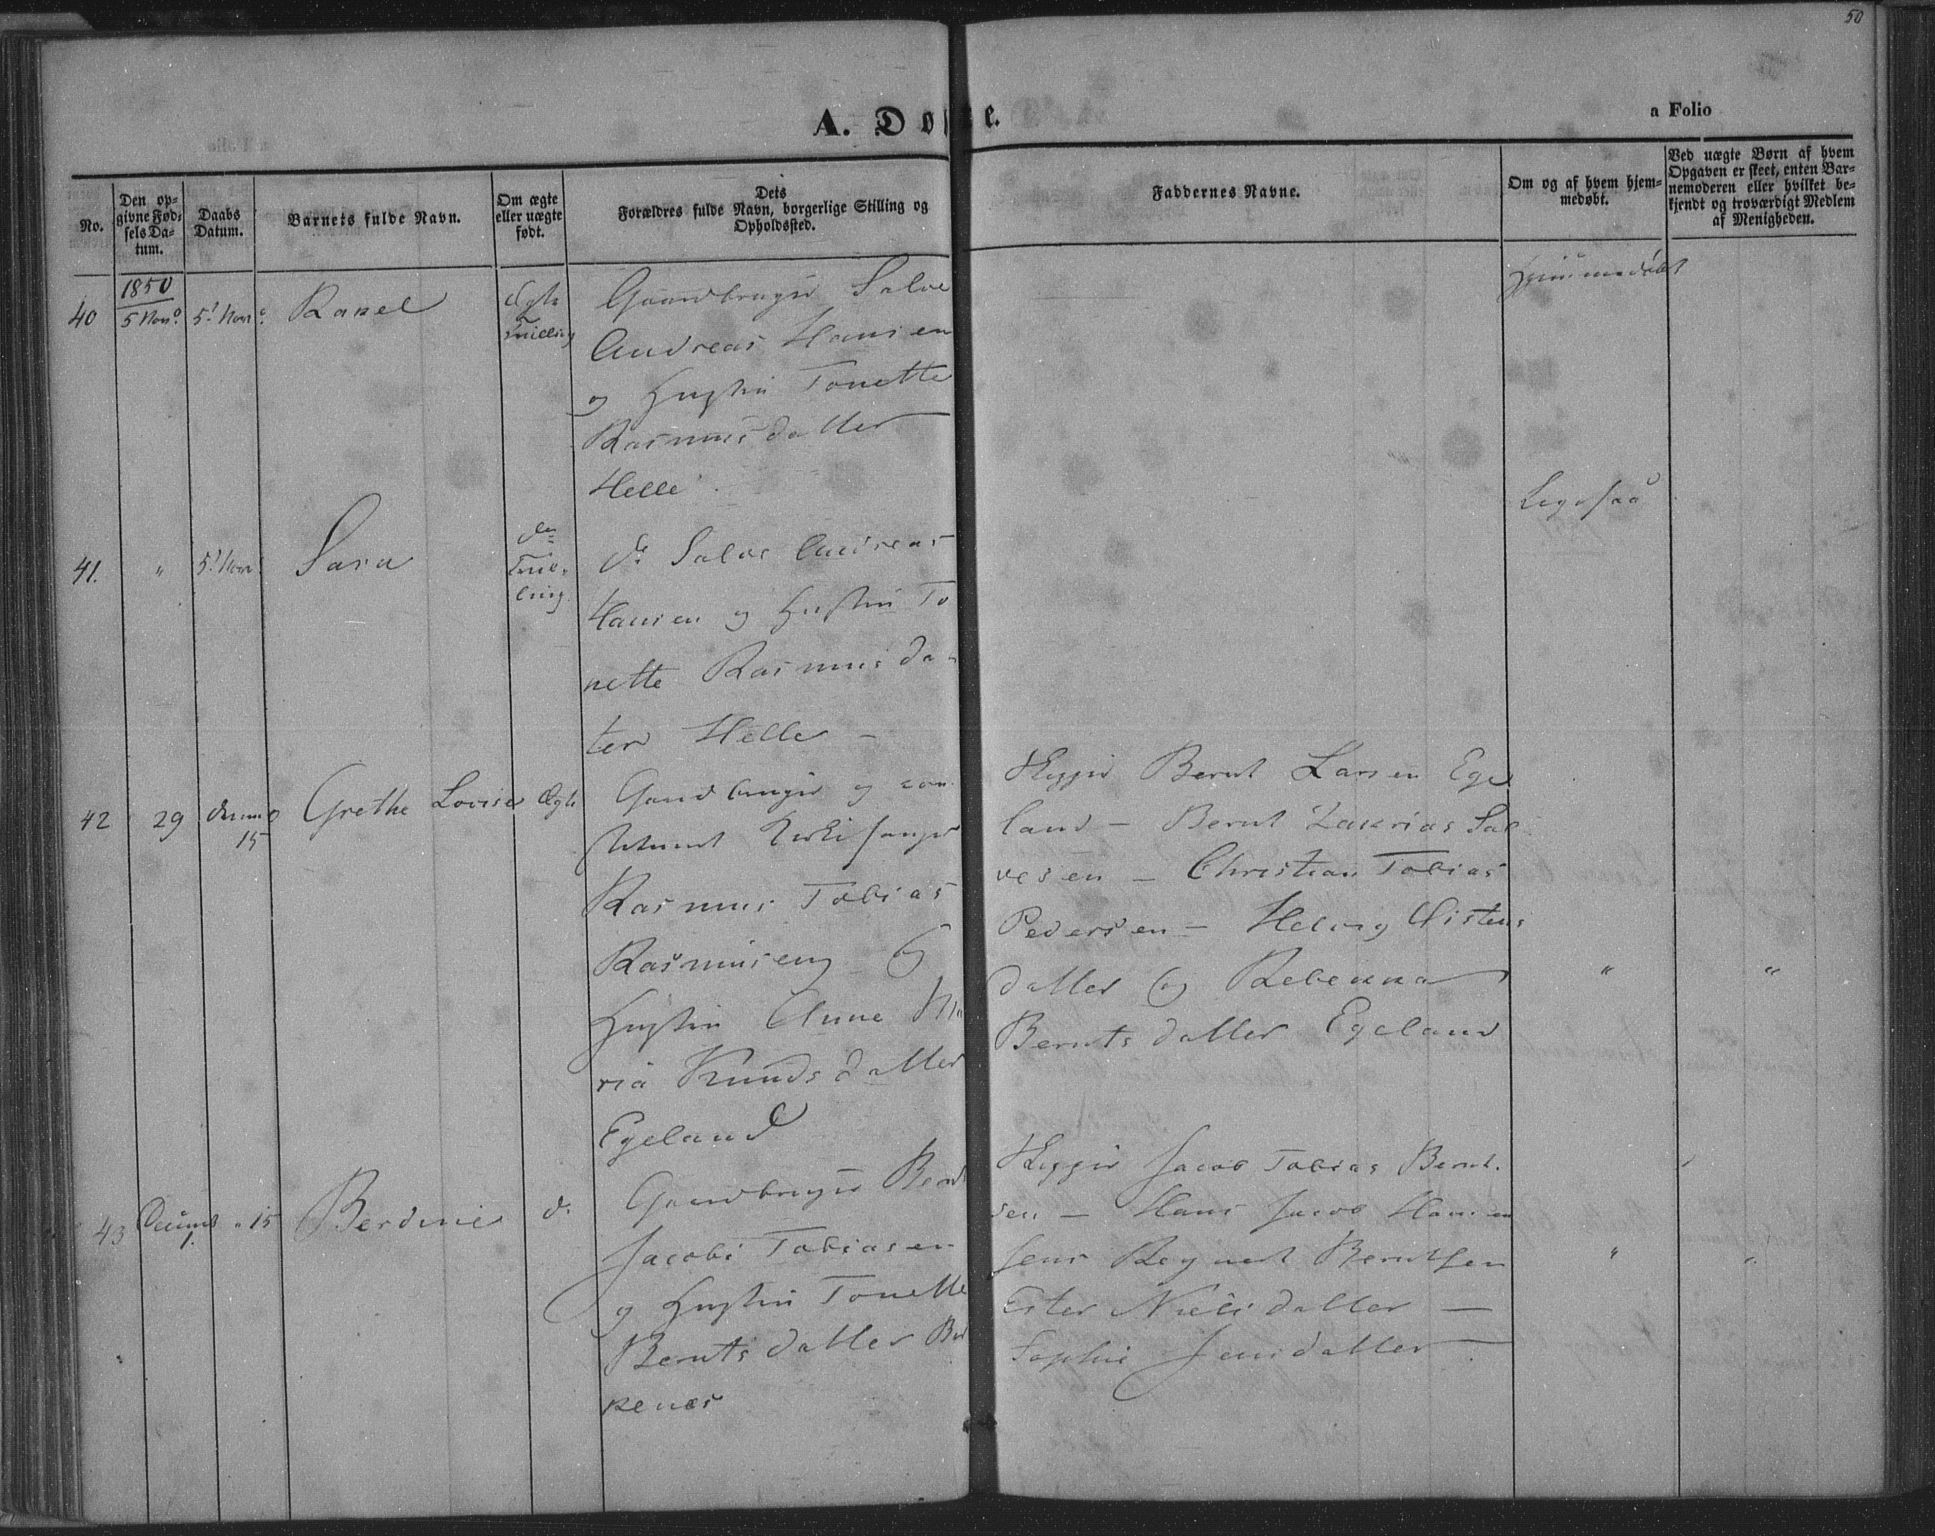 50
A. Døbte.
a Folio
No.
Den op-
givne Fød-
sels Da-
tum.
Daabs
Datum.
Barnets fulde Navn.
Om ægte
eller uægte
født.
Dets
Forældres fulde Navn, borgerlige Stilling og
Opholdssted.
Faddernes Navne.
Om og af hvem hjem-
medøbt.
Ved uægte Børn af hvem
Opgaven er skeet, enten Bar-
nemoderen eller hvilket be-
kjendt og troværdigt Medlem
af Menigheden.
1850
40 5 Nov. 5 Nov. Rakel Ægte
Tvilling
Gaardbruger Salve
Andreas Hansen
og Hustru Tonette
Rasmusdatter
Helle
Hjemmedøbt
41. " 5 Nov. Sara do
Tvil-
ling
do Salve Andreas
Hansen og Hustru To
nette Rasmusda
ter Helle -
42 29 15 Grethe Lovise Ægte
Gaardbruger og con
Kirkesanger
Rasmus Tobias
Rasmusen Og
Hustru Anne Ma
ria Knudsdatter
Egeland
Bernt Larsen Ege
land - Bernt Zakrias Sal
vesen - Christian Tobias
Pedersen -
datter Og
Berntsdatter Egeland
" "
43 1. " 15 Berdine do
Gaardbruger Bernt
Jacob Tobiasen
og Hustru Tonette
Berntsdatter
kenes
Jacob Tobias Bernt
sen - Hans Jacob Han
sens Berntsen
Ester Nielsdatter -
Sophie Jensdatter -
" "